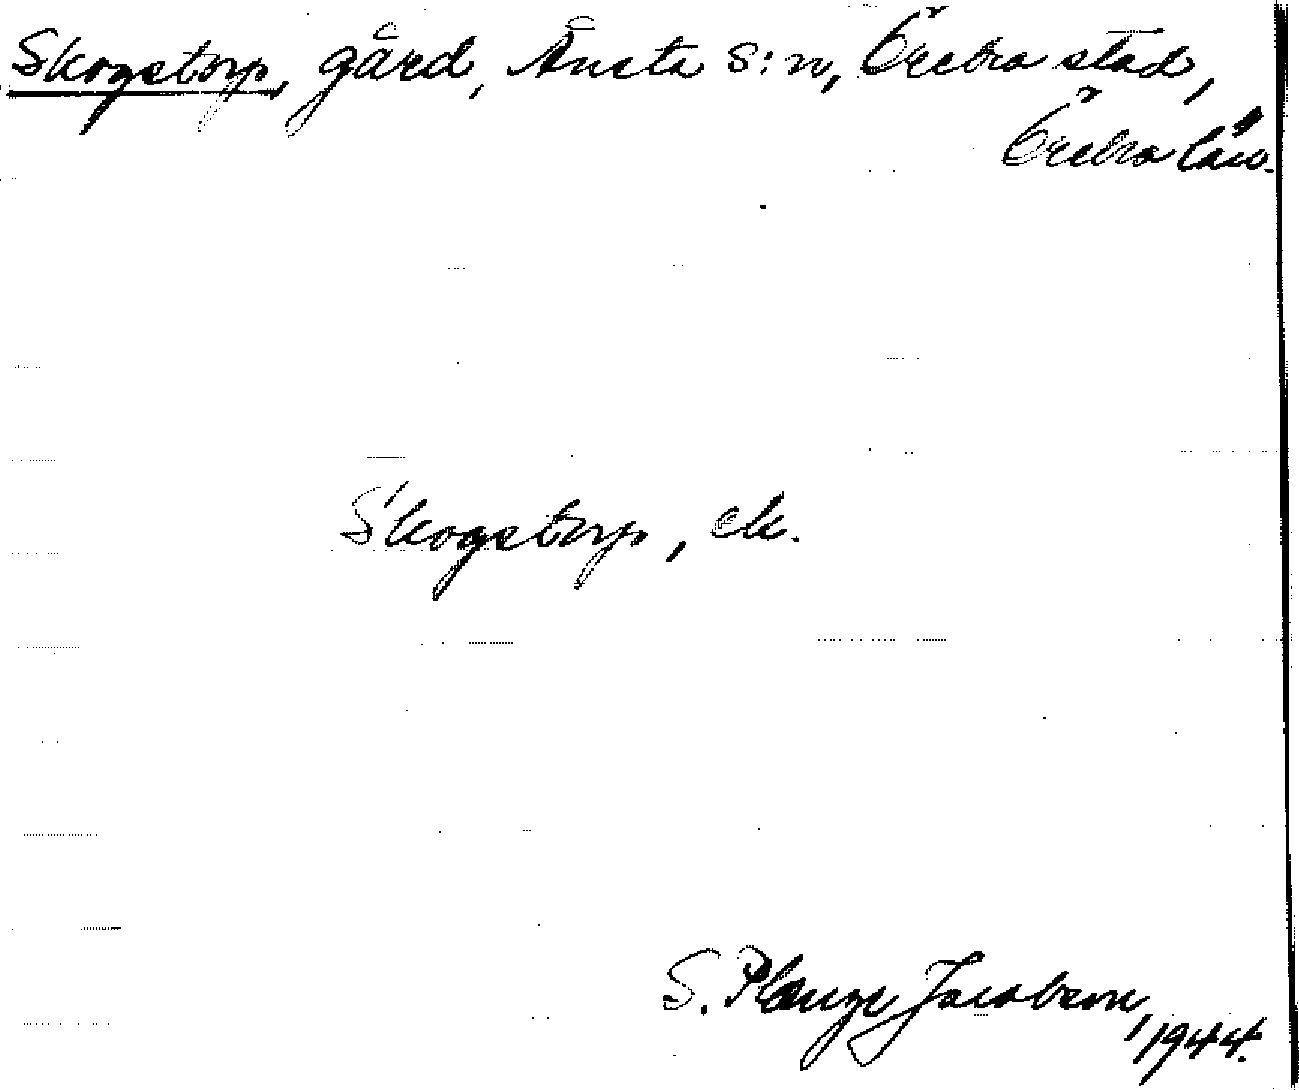 Skogstorp, gård, Ånsta s:n, Örebro stad,
Örebro län.
Skogstorp, ek.
S. Plange Jacobson,
1944.